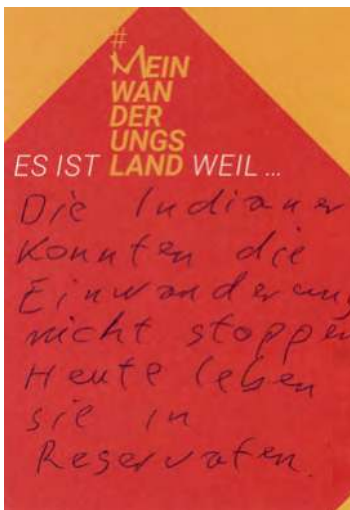 #
MEIN
WAN
DER
UNGS
ES IST LAND WEIL ...
Die Indianer
konnten die
Einwanderung
nicht stoppen
Heute leben
sie in
Reservaten.